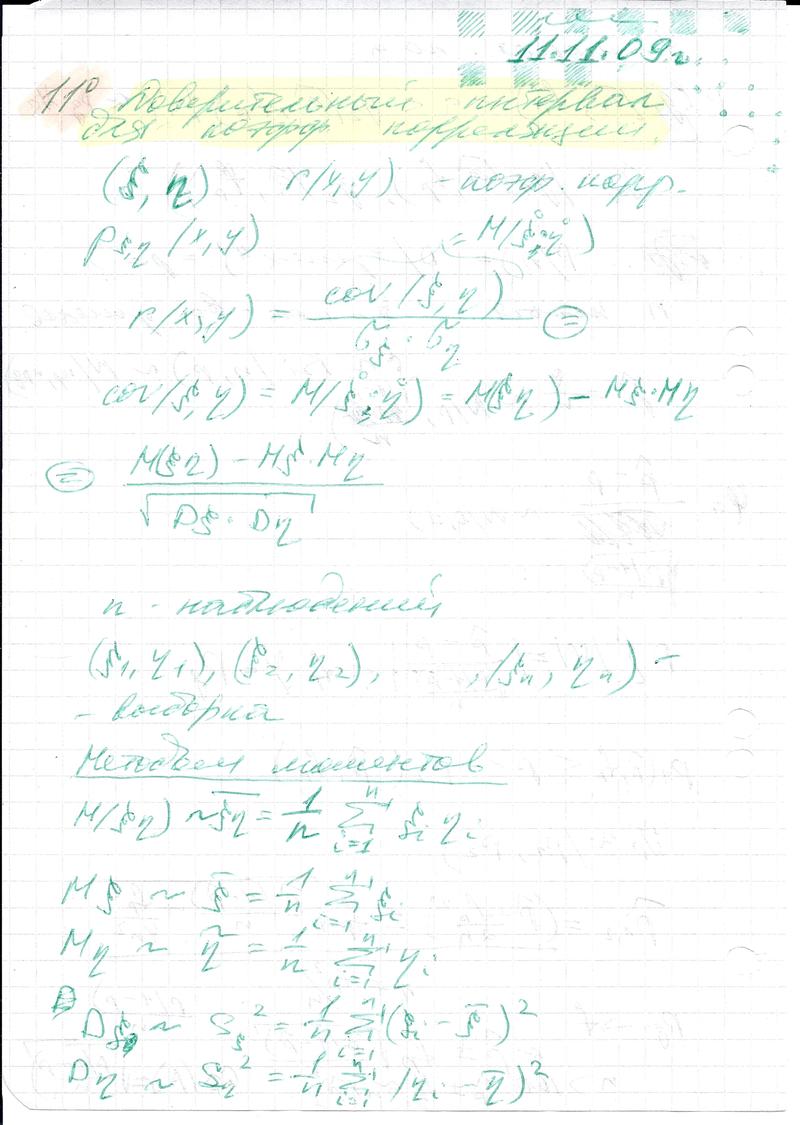 11.11.09г.
11° Доверительный интервал
для коэфф корреляции.
(ξ, η) r(x, y) - коэф. корр.
p_{ξ,η}(x, y) = M(ξ° · η°)
r(x, y) = cov(ξ, η) / (σ_ξ · σ_η) =
cov(ξ, η) = M(ξ° · η°) = M(ξη) − Mξ·Mη
= (M(ξη) − Mξ·Mη) / √(Dξ · Dη)
n - наблюдений
(ξ₁, η₁), (ξ₂, η₂), , (ξₙ, ηₙ) −
− выборка
Методом моментов
M(ξη) ~ \overline{ξη} = 1/n ∑_{i=1}^{n} ξᵢ ηᵢ
Mξ ~ ξ̄ = 1/n ∑_{i=1}^{n} ξᵢ
Mη ~ η̄ = 1/n ∑_{i=1}^{n} ηᵢ
Dξ ~ S_ξ² = 1/n ∑_{i=1}^{n} (ξᵢ − ξ̄)²
Dη ~ S_η² = 1/n ∑_{i=1}^{n} (ηᵢ − η̄)²